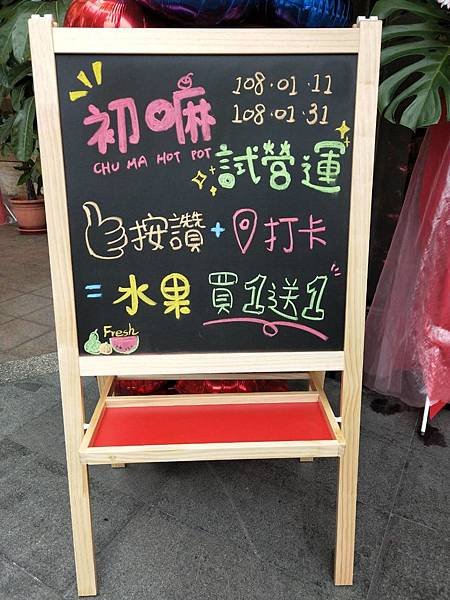 初嘛
CHU MA HOT POT
108.01.11
108.01.31
試營運
按讚+打卡
=水果 買1送1
Fresh